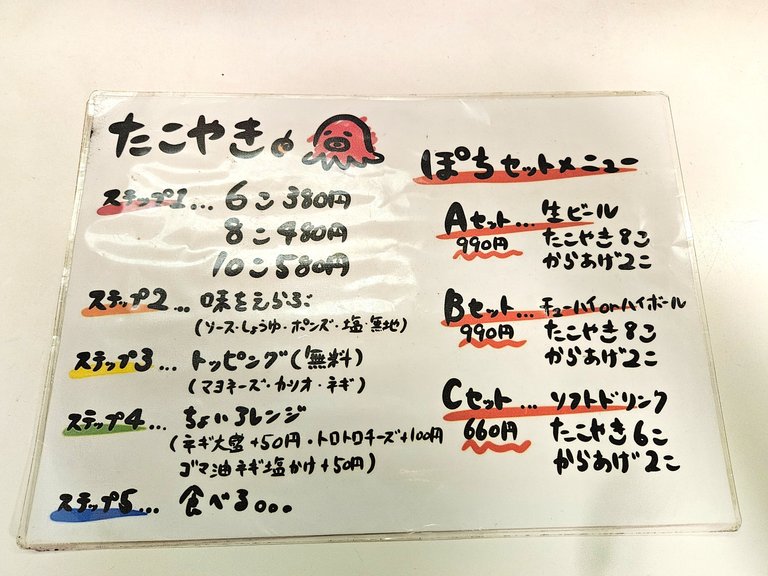 たこやき
ステップ1... 6こ380円
8こ480円
10こ580円
ステップ2... 味をえらぶ
(ソース・しょうゆ・ポンズ・塩・無地)
ステップ3... トッピング(無料)
(マヨネーズ・カツオ・ネギ)
ステップ4... ちょいアレンジ
(ネギ大盛+50円・トロトロチーズ+100円
ゴマ油ネギ塩かけ+50円)
ステップ5... 食べる。。。
ぽちセットメニュー
Aセット... 生ビール
990円 たこやき8こ
からあげ2こ
Bセット... チューハイorハイボール
990円 たこやき8こ
からあげ2こ
Cセット... ソフトドリンク
660円 たこやき6こ
からあげ2こ